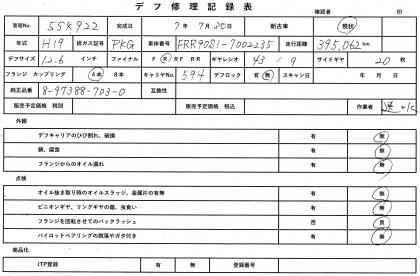 デフ修理記録表
確認者 印
管理No. 55K922 完成日 7年 7月30日 新古車 現状
年式 H19 排ガス記号 PKG 車体番号 FRR90S1-7002235 走行距離 395,062 km
デフサイズ 12.6 インチ ファイナル F R RF RR ギヤレシオ 43 / 9 サイドギヤ 20 枚
フランジ カップリング 4本 8本 キャリヤNo. 594 デフロック 有 無 スキャン日 年 月 日
純正品番 8-97388-703-0 互換性
販売予定価格 税別 販売予定価格 税込 作業者
外観
デフキャリアのひび割れ、破損 有 無
錆、腐食 有 無
フランジからのオイル漏れ 有 無
点検
オイル抜き取り時のオイルスラッジ、金属片の有無 有 無
ピニオンギヤ、リングギヤの傷、虫食い 有 無
フランジを回転させてのバックラッシュ 否 良
パイロットベアリングの脱落やガタ付き 有 無
商品化
JTP登録 有 無 登録番号